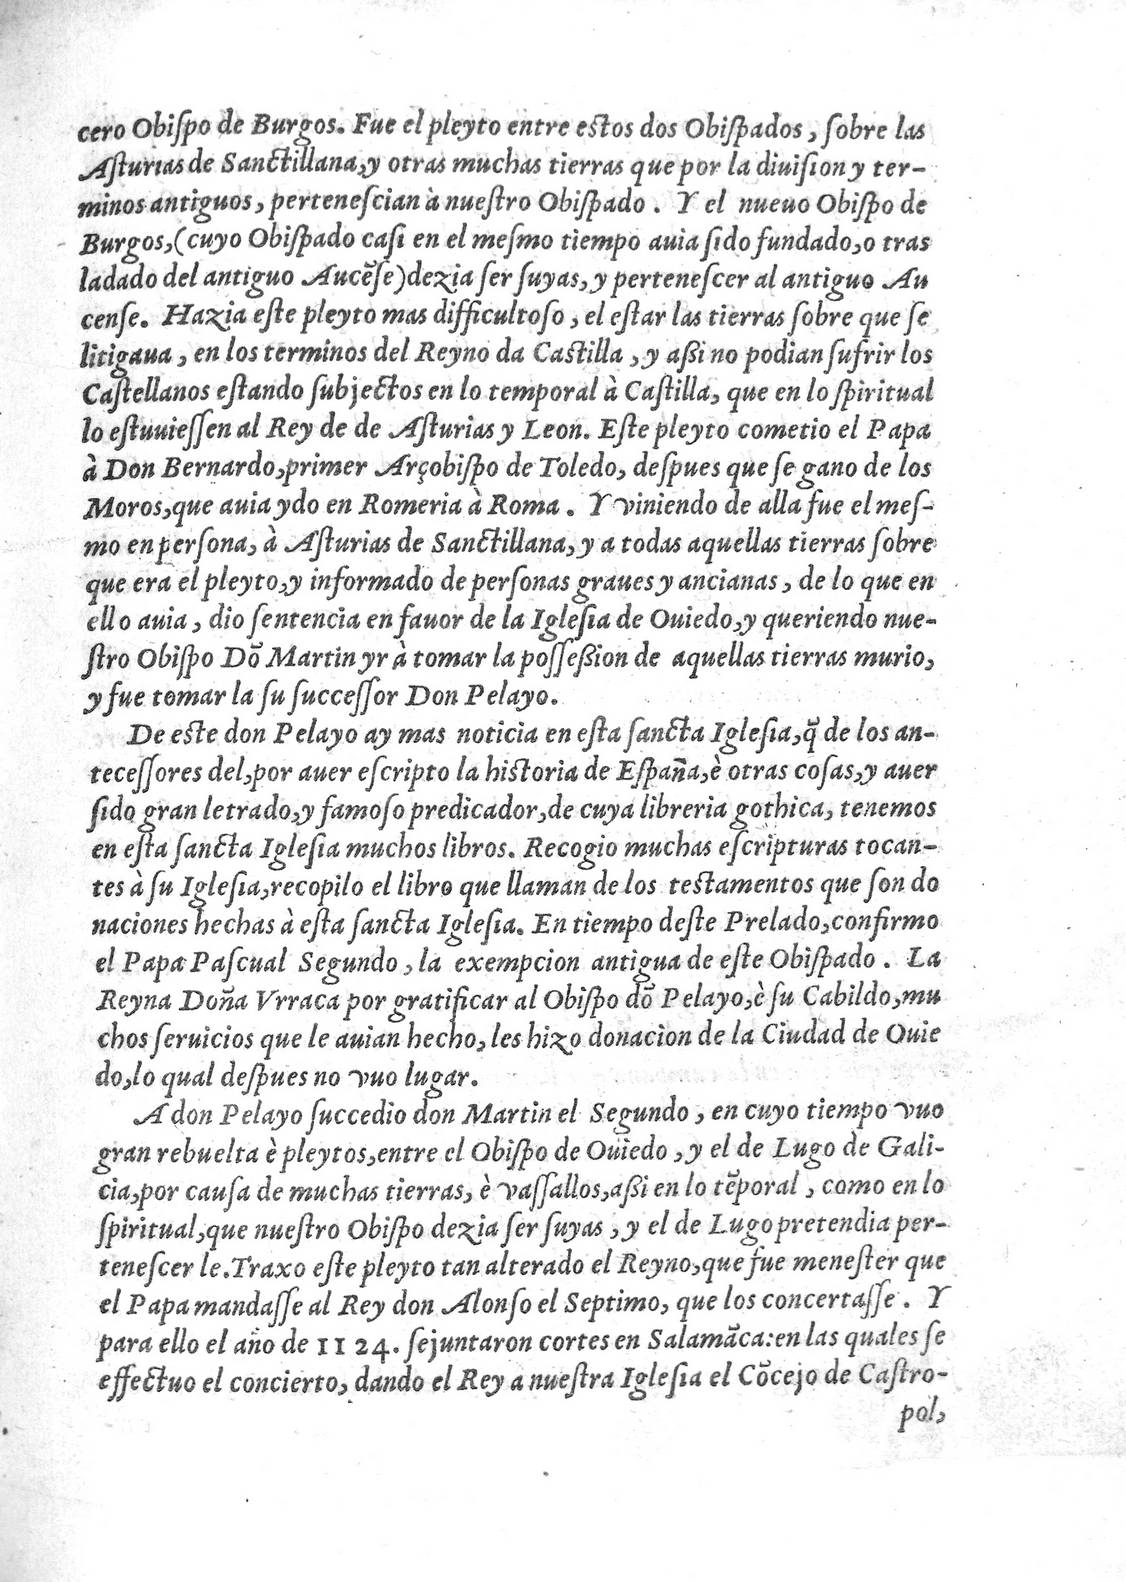 cero Obiſpo de Burgos. Fue el pleyto entre eſtos dos Obiſpados, ſobre las
Aſturias de Sanctillana, y otras muchas tierras que por la diuiſion y ter-
minos antiguos, perteneſcian à nueſtro Obiſpado. Y el nueuo Obiſpo de
Burgos, (cuyo Obiſpado caſi en el meſmo tiempo auia ſido fundado, o tras
ladado del antiguo Aucẽſe) dezia ſer ſuyas, y perteneſcer al antiguo Au
cenſe. Hazia eſte pleyto mas difficultoſo, el eſtar las tierras ſobre que ſe
litigaua, en los terminos del Reyno da Caſtilla, y aßi no podian ſufrir los
Caſtellanos eſtando ſubjectos en lo temporal à Caſtilla, que en lo ſpiritual
lo eſtuuieſſen al Rey de de Aſturias y Leon. Eſte pleyto cometio el Papa
à Don Bernardo, primer Arçobiſpo de Toledo, deſpues que ſe gano de los
Moros, que auia ydo en Romeria à Roma. Y viniendo de alla fue el meſ-
mo en perſona, à Aſturias de Sanctillana, y a todas aquellas tierras ſobre
que era el pleyto, y informado de perſonas graues y ancianas, de lo que en
ello auia, dio ſentencia en fauor de la Igleſia de Ouiedo, y queriendo nue-
ſtro Obiſpo Dõ Martin yr à tomar la poſſeßion de aquellas tierras murio,
y fue tomar la ſu ſucceſſor Don Pelayo.
De eſte don Pelayo ay mas noticia en eſta ſancta Igleſia, q̃ de los an-
teceſſores del, por auer eſcripto la hiſtoria de Eſpaña, è otras coſas, y auer
ſido gran letrado, y famoſo predicador, de cuya libreria gothica, tenemos
en eſta ſancta Igleſia muchos libros. Recogio muchas eſcripturas tocan-
tes à ſu Igleſia, recopilo el libro que llaman de los teſtamentos que ſon do
naciones hechas à eſta ſancta Igleſia. En tiempo deſte Prelado, confirmo
el Papa Paſcual Segundo, la exempcion antigua de eſte Obiſpado. La
Reyna Doña Vrraca por gratificar al Obiſpo dõ Pelayo, è ſu Cabildo, mu
chos ſeruicios que le auian hecho, les hizo donacion de la Ciudad de Ouie
do, lo qual deſpues no vuo lugar.
A don Pelayo ſuccedio don Martin el Segundo, en cuyo tiempo vuo
gran rebuelta è pleytos, entre el Obiſpo de Ouiedo, y el de Lugo de Gali-
cia, por cauſa de muchas tierras, è vaſſallos, aßi en lo tẽporal, como en lo
ſpiritual, que nueſtro Obiſpo dezia ſer ſuyas, y el de Lugo pretendia per-
teneſcer le. Traxo eſte pleyto tan alterado el Reyno, que fue meneſter que
el Papa mandaſſe al Rey don Alonſo el Septimo, que los concertaſſe. Y
para ello el año de 1124. ſe juntaron cortes en Salamãca: en las quales ſe
effectuo el concierto, dando el Rey a nueſtra Igleſia el Cõcejo de Caſtro-
pol,